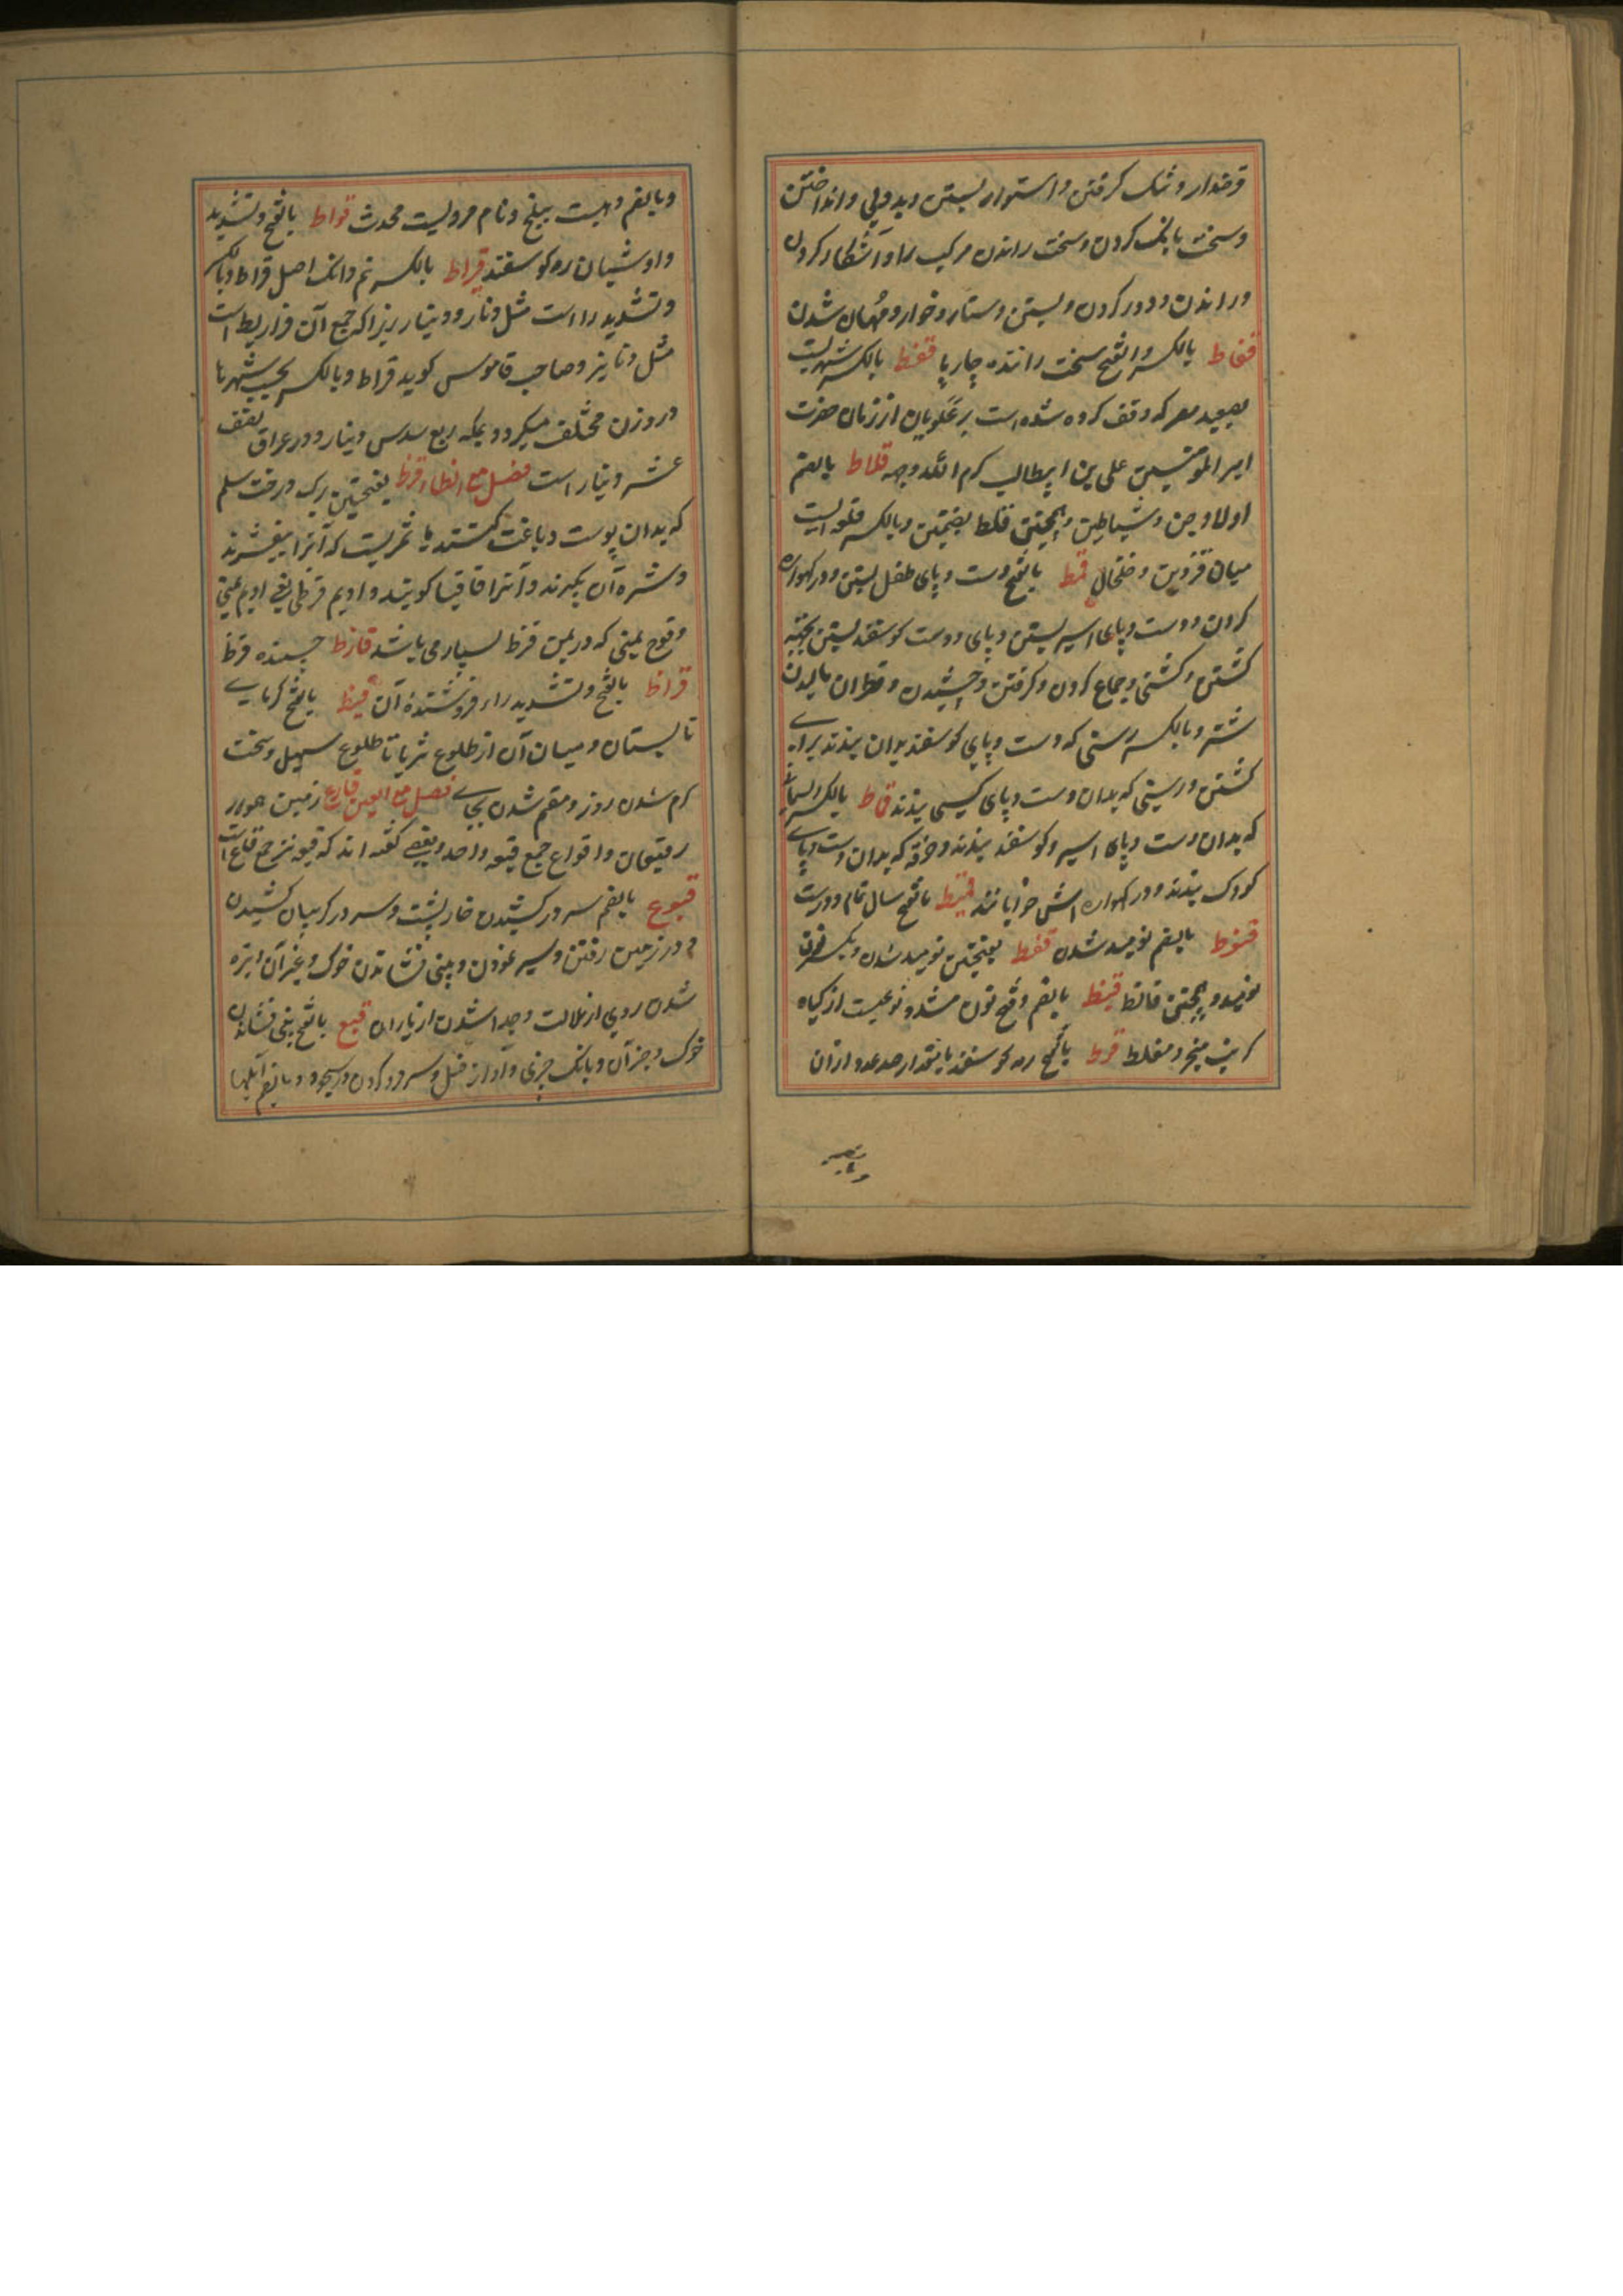 قرضدار و تنک کرفتن و استوار بستن و بددلی و انداختن
و سخت بانک کردن و سخت راندن مرکب را و آشکار کردن
و راندن و دور کردن و بستن دستار و خوار و مهان شدن
قعاط بالکسر و الفتح سخت راننده چارپا قفط بالکسر شهریست
بصعید مصر که وقف کرده شده است بر علویان از زمان حضرت
امیر المؤمنین علی بن ابیطالب کرم الله وجهه قلاط بالضم
اولاد جن و شیاطین و همچنین قلط بضمتین و بالکسر قلعه ایست
میان قزوین و خلخال قمط بالفتح دست و پای طفل بستن و در کهواره
کردن و دست و پای اسیر بستن و پای و دست کوسفند بستن بجهته
کشتن و کشتی و جماع کردن و کرفتن و چشیدن و قطران مالیدن
شتر و بالکسر رسنی که دست و پای کوسفند بدان بندند برای
کشتن و رسنی که بدان دست و پای کسی بندند قماط بالکسر ریسمانی
که بدان دست و پای اسیر و کوسفند بندند و خرقه که بدان دست و پای
کودک بندند و در کهواره اش خوابانند قمیط بالفتح سال تمام و درست
قنوط بالضم نومید شدن قنط بفتحتین نومید شدن و بکسر نون
نومید و همچنین قانط قنبیط بالضم و فتح نون مشدد نوعیست از کیاه
کرنب و مغلط قوط بالفتح رمه کوسفند بامقدار صد عدد از آن
و بالضم دهیست ببلخ و نام مردیست محدث قواط بالفتح و تشدید
واو شبان رمه کوسفند قیراط بالکسر نیم دانک اصل قراط و بالکسر
و تشدید را است مثل دنار و دینار زیراکه جمع آن قراریط است
مثل دنانیر و صاحب قاموس کوید قراط و بالکسر بحسب شهرها
در وزن مختلف میکردد بمکه ربع سدس دینار و در عراق نصف
عشر دینار است فصل مع الظاء قرظ بفتحتین برک درخت سلم
که بدان پوست دباغت کنند یا ثمریست که آنرا بیفشرند
و شیره آن بکیرند و آنرا اقاقیا کویند و ادیم قرظی یعنی ادیم یمنی
و قوچ یمنی که در یمن قرظ بسیار می باشد قارظ چیننده قرظ
قراظ بالفتح و تشدید راء فروشنده آن قیظ بالفتح کرمای
تابستان و میان آن از طلوع ثریا تا طلوع سهیل و سخت
کرم شدن روز و مقیم شدن بجای فصل مع العین قاع زمین هموار
قیعان و اقواع جمع قیعه واحد و بعضی کفته اند که قیعه نیز جمع قاع است
قبوع بالضم سر در کشیدن خار پشت و سر در کریبان کشیدن
و در زمین رفتن و سیر نمودن و بینی فشاندن خوک و غیر آن و تیره
شدن روی از ملالت و جدا شدن از یاران قبع بالفتح بینی فشاندن
خوک و جز آن و بانک چیزی و آواز فیل و سر فرو کردن در سجود و بالضم
و بالضم